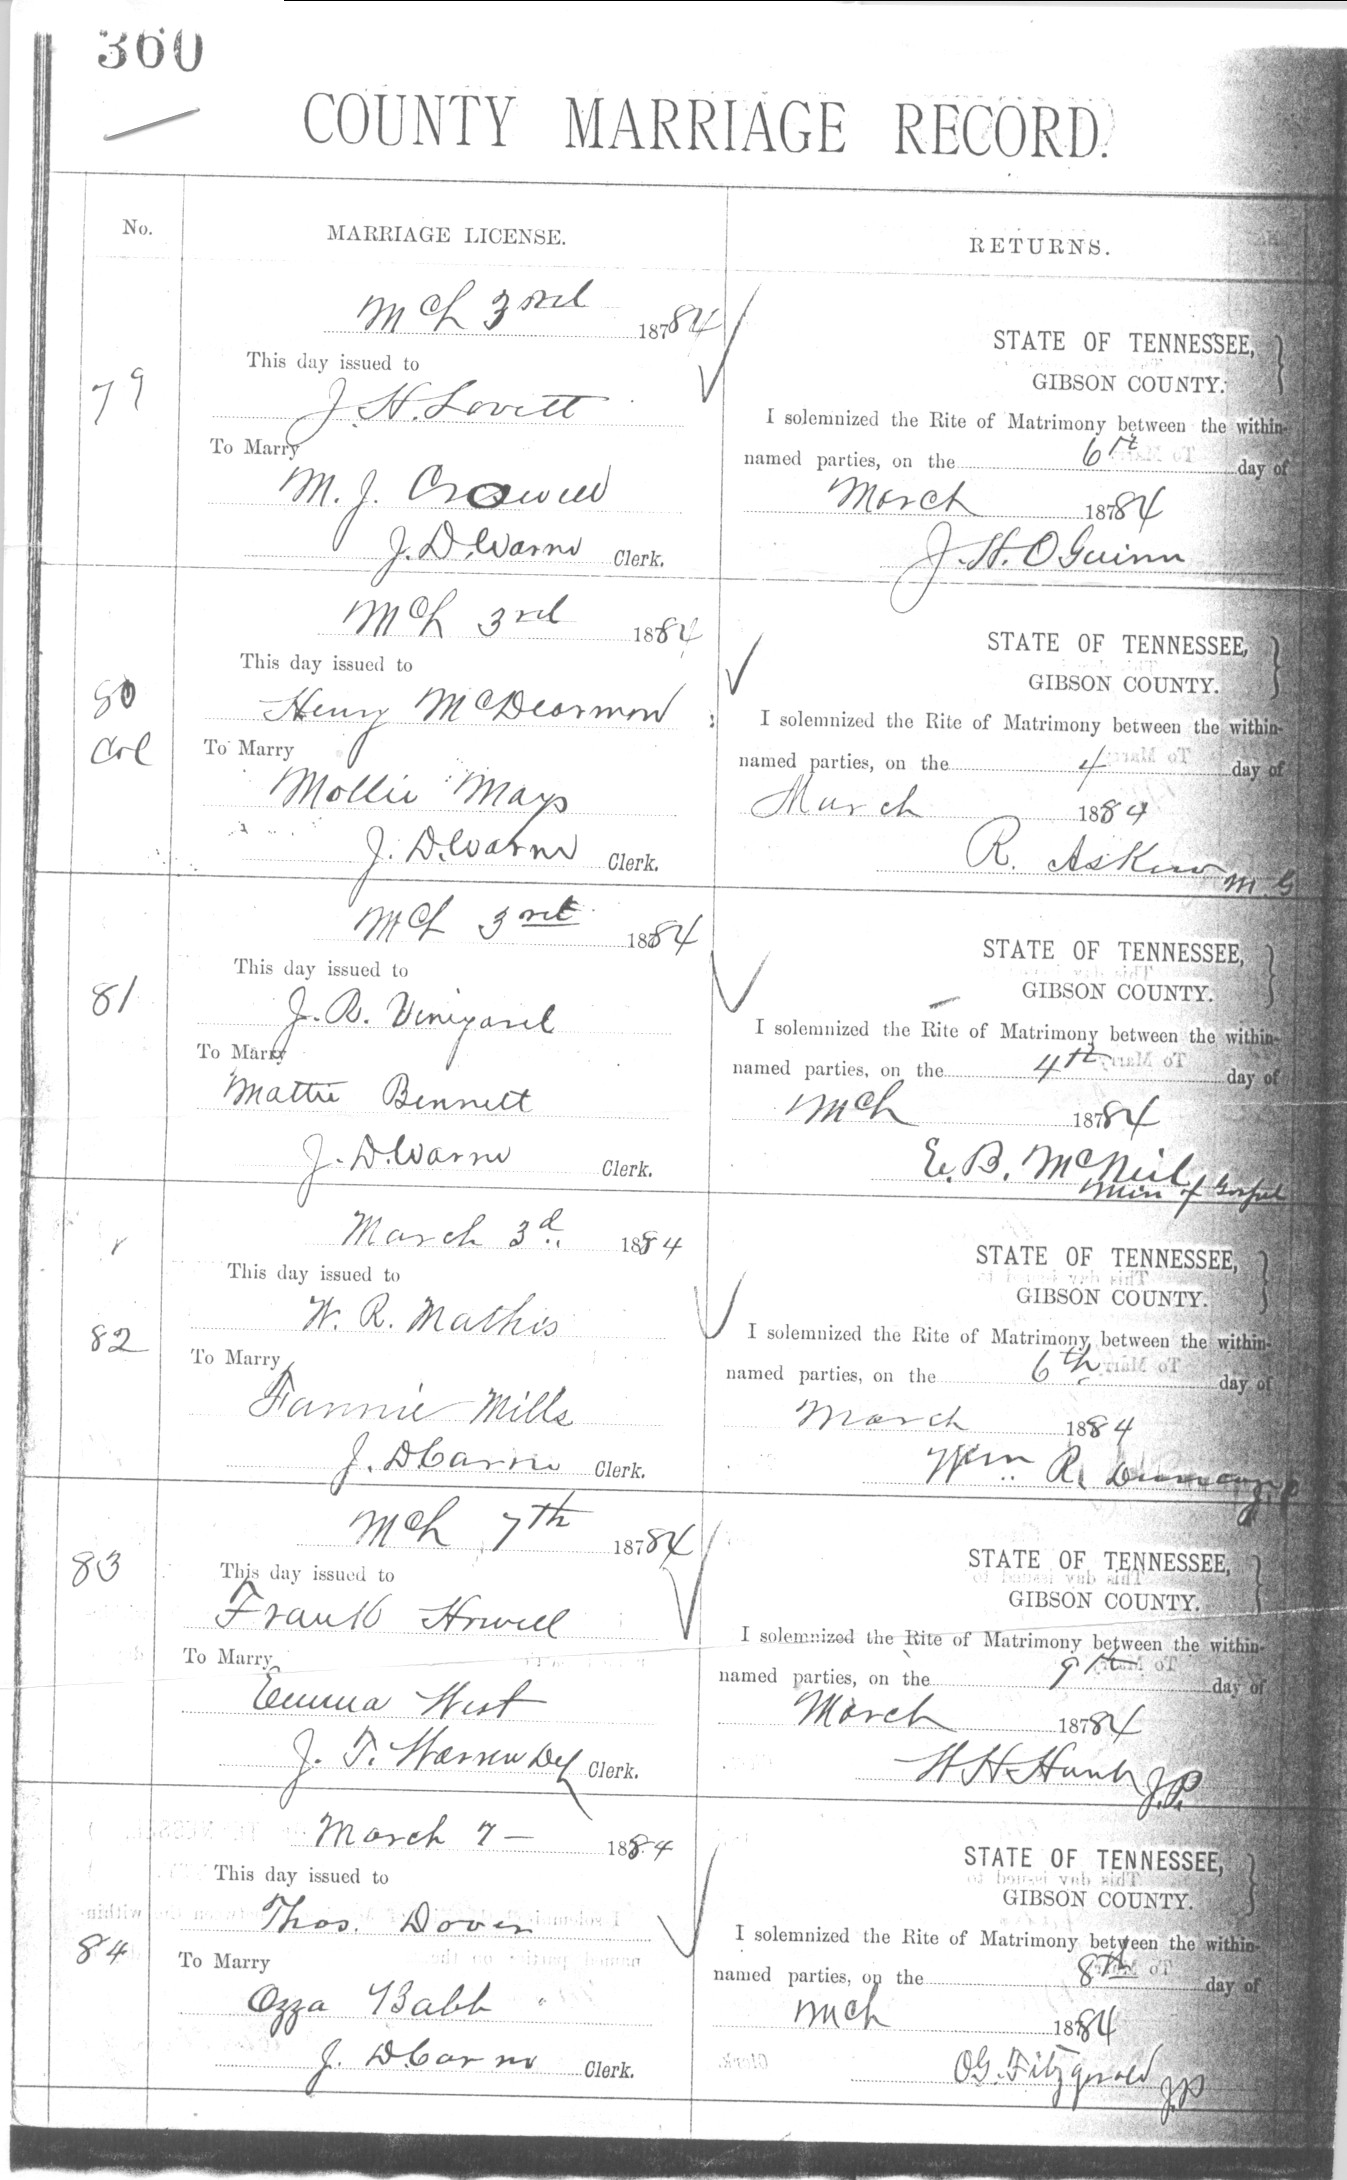 360
COUNTY MARRIAGE RECORD.
No.
MARRIAGE LICENSE.
RETURNS.
79
Mch 3rd 1884
This day issued to
J. H. Lovett
To Marry
M. J. Crowell
J. D. Clerk.
STATE OF TENNESSEE,
GIBSON COUNTY.
I solemnized the Rite of Matrimony between the within-
named parties, on the 6th day of
March 1884
J. H. O Guinn
80
Col
Mch 3rd 1884
This day issued to
Henry McDearmon
To Marry
Mollie Mays
J. D. Clerk.
STATE OF TENNESSEE,
GIBSON COUNTY.
I solemnized the Rite of Matrimony between the within-
named parties, on the 4 day of
March 1884
R. Askew M. G
81
Mch 3rd 1884
This day issued to
J. R. Vineyard
To Marry
Mattie Bennett
J. D. Clerk.
STATE OF TENNESSEE,
GIBSON COUNTY.
I solemnized the Rite of Matrimony between the within-
named parties, on the 4th day of
Mch 1884
E. B. McNeil
Min of Gospel
82
March 3d 1884
This day issued to
W. R. Mathis
To Marry
Fannie Mills
J. D. Clerk.
STATE OF TENNESSEE,
GIBSON COUNTY.
I solemnized the Rite of Matrimony between the within-
named parties, on the 6th day of
March 1884
Wm. R. Duncan J.P
83
Mch 7th 1884
This day issued to
Frank Howell
To Marry
Emma West
J. T. Warren Clerk.
STATE OF TENNESSEE,
GIBSON COUNTY.
I solemnized the Rite of Matrimony between the within-
named parties, on the 9th day of
March 1884
W H Hunt J.P.
84
March 7 – 1884
This day issued to
Thos. Dover
To Marry
Ozza Babb
J. D. Clerk.
STATE OF TENNESSEE,
GIBSON COUNTY.
I solemnized the Rite of Matrimony between the within-
named parties, on the 8th day of
Mch 1884
O G. Fitzgerald JP